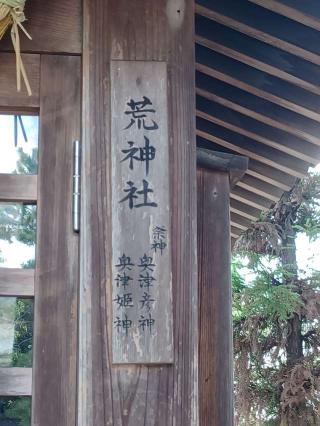 荒神社
祭神
奥津彦神
奥津姫神